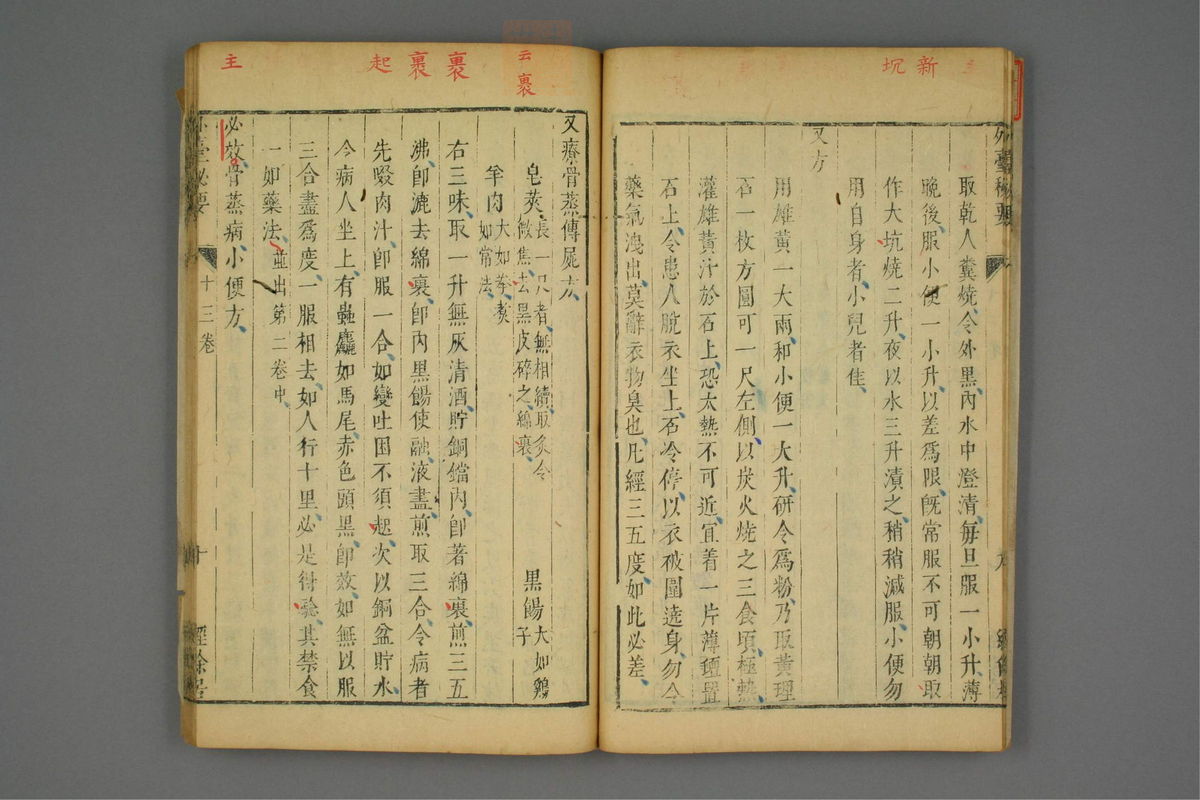 新
坑
外臺秘要
取乾人糞燒、令外黑、內水中澄清、每旦服一小升、薄
晚後、服小便一小升、以差爲限、旣常服不可朝朝取
作大坑燒二升、夜以水三升漬之、稍稍減服、小便勿
用自身者、小兒者佳、
又方
用雄黃一大兩、和小便一大升、研令爲粉、乃取黃理
石一枚方圓可一尺左側、以炭火燒之三食頃、極熱、
灌雄黃汁於石上、恐太熱不可近、宜着一片薄氊置
石上、令患人脫衣坐上、石冷停、以衣被圍遶身、勿令
藥氣洩出、莫辭衣物臭也、凡經三五度、如此必差、
云裹
裹
裹
起
主
又療骨蒸傳屍方、
皂莢、長一尺者、無相續、取炙令
微焦、去黑皮碎之綿裹、
黑餳大如鷄
子
羊肉大如拳、煑
如常法、
右三味、取一升無灰清酒、貯銅鐺內、卽著綿裹煎三五
沸卽漉去綿裹、卽內黑餳使融液盡、煎取三合、令病者
先啜肉汁、卽服一合、如變吐困不須起、次以銅盆貯水、
令病人坐上、有蟲麤如馬尾、赤色頭黑、卽效、如無以服
三合盡爲度、一服相去、如人行十里、必是得驗、其禁食
一如藥法、並出第二卷中、
必效、骨蒸病小便方、
外臺秘要
十三卷
十
經餘居